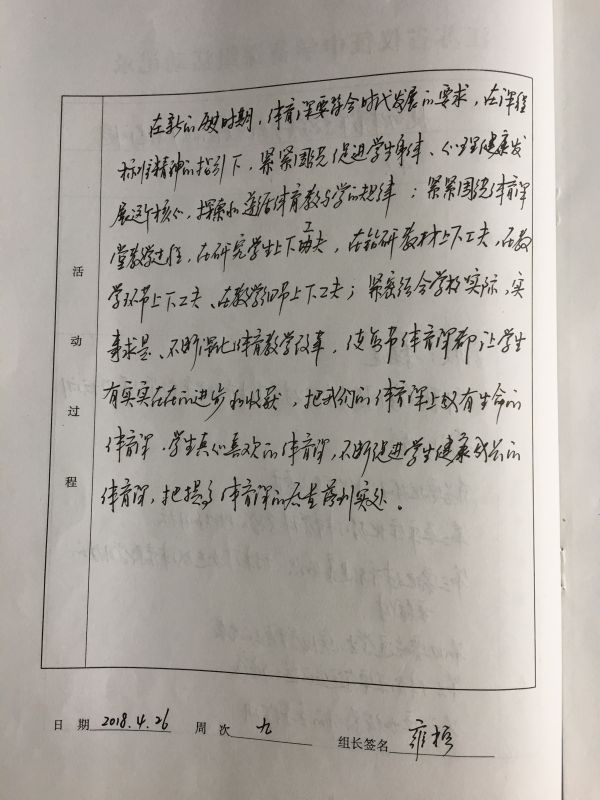 在新的历史时期，体育课要符合时代发展的要求，在课程
标准精神的指引下，紧紧围绕促进学生身体、心理健康发
展这个核心，探索和遵循体育教与学的规律；紧紧围绕体育课
堂教学过程，在研究学生上下工夫，在钻研教材上下工夫，在教
学环节上下工夫、在教学细节上下工夫；紧密结合学校实际，实
事求是、不断深化体育教学改革，使每节体育课都让学生
有实实在在的进步和收获，把我们的体育课上成有生命的
体育课，学生真心喜欢的体育课，不断促进学生健康成长的
体育课，把提高体育课的质量落到实处。
活动过程
日期 2018.4.26 周次 九 组长签名